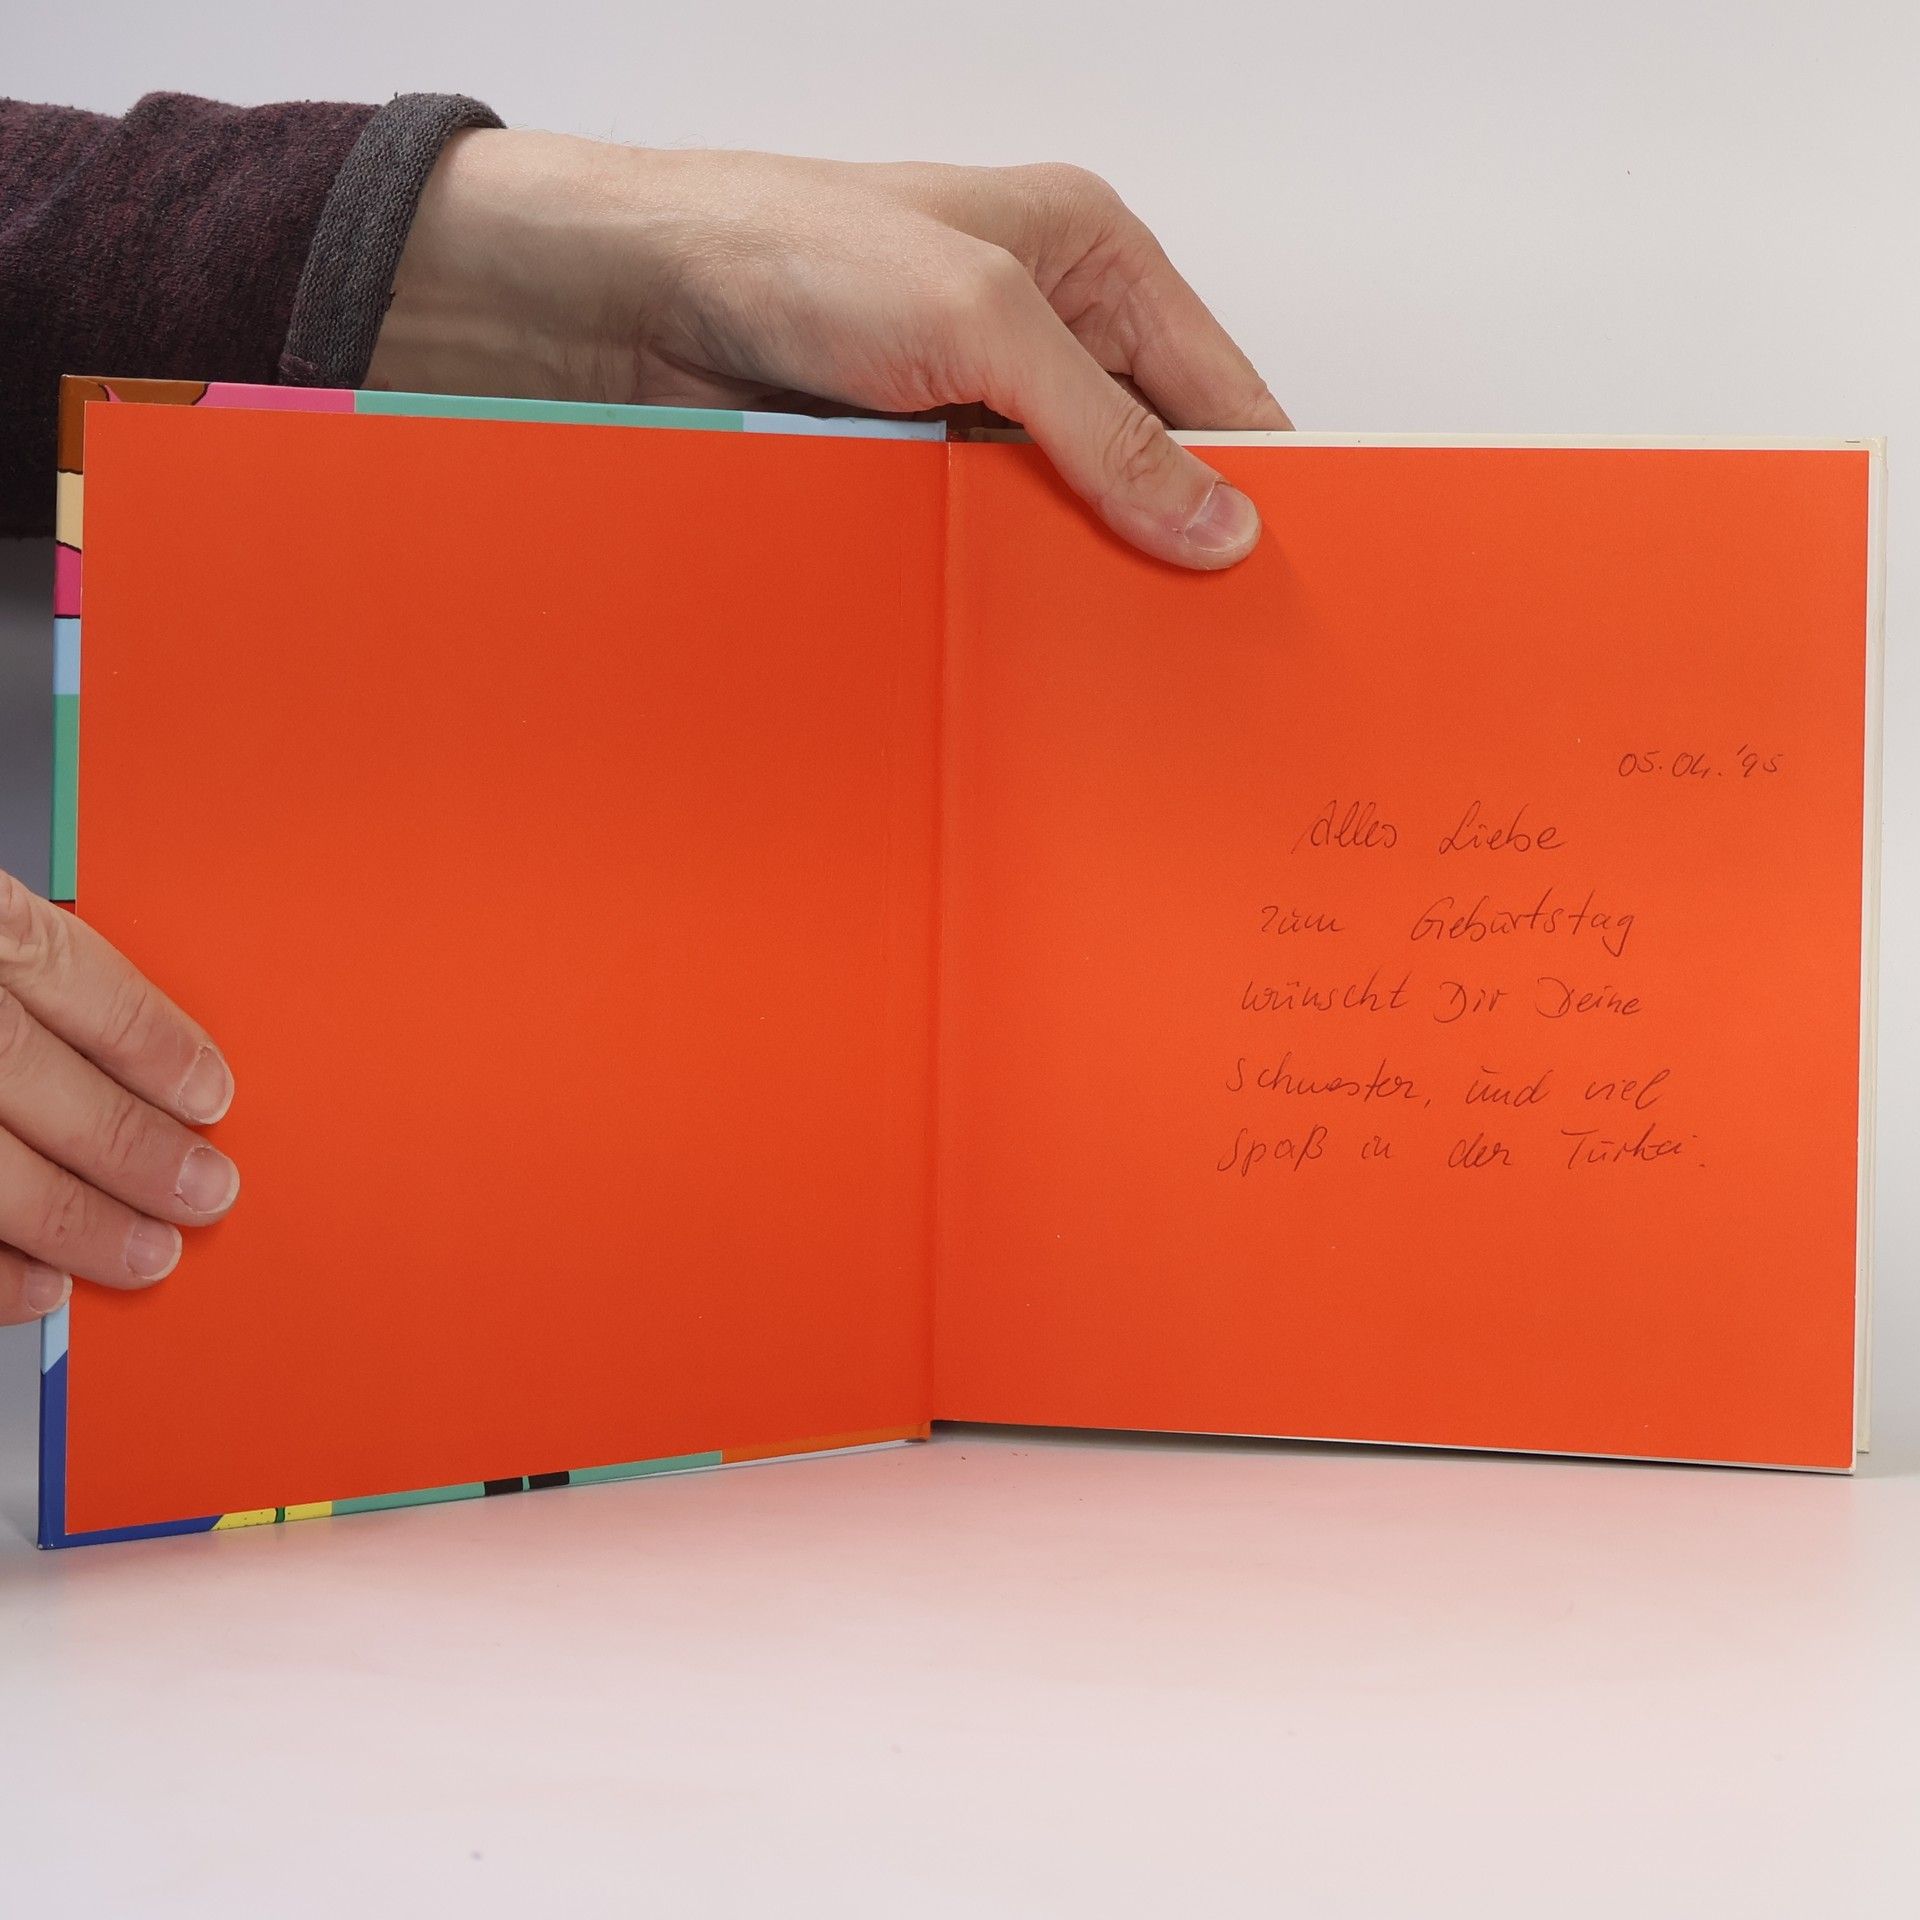 05.04.'95
Alles Liebe
zum Geburtstag
wünscht Dir Deine
Schwester, und viel
Spaß in der Türkei.